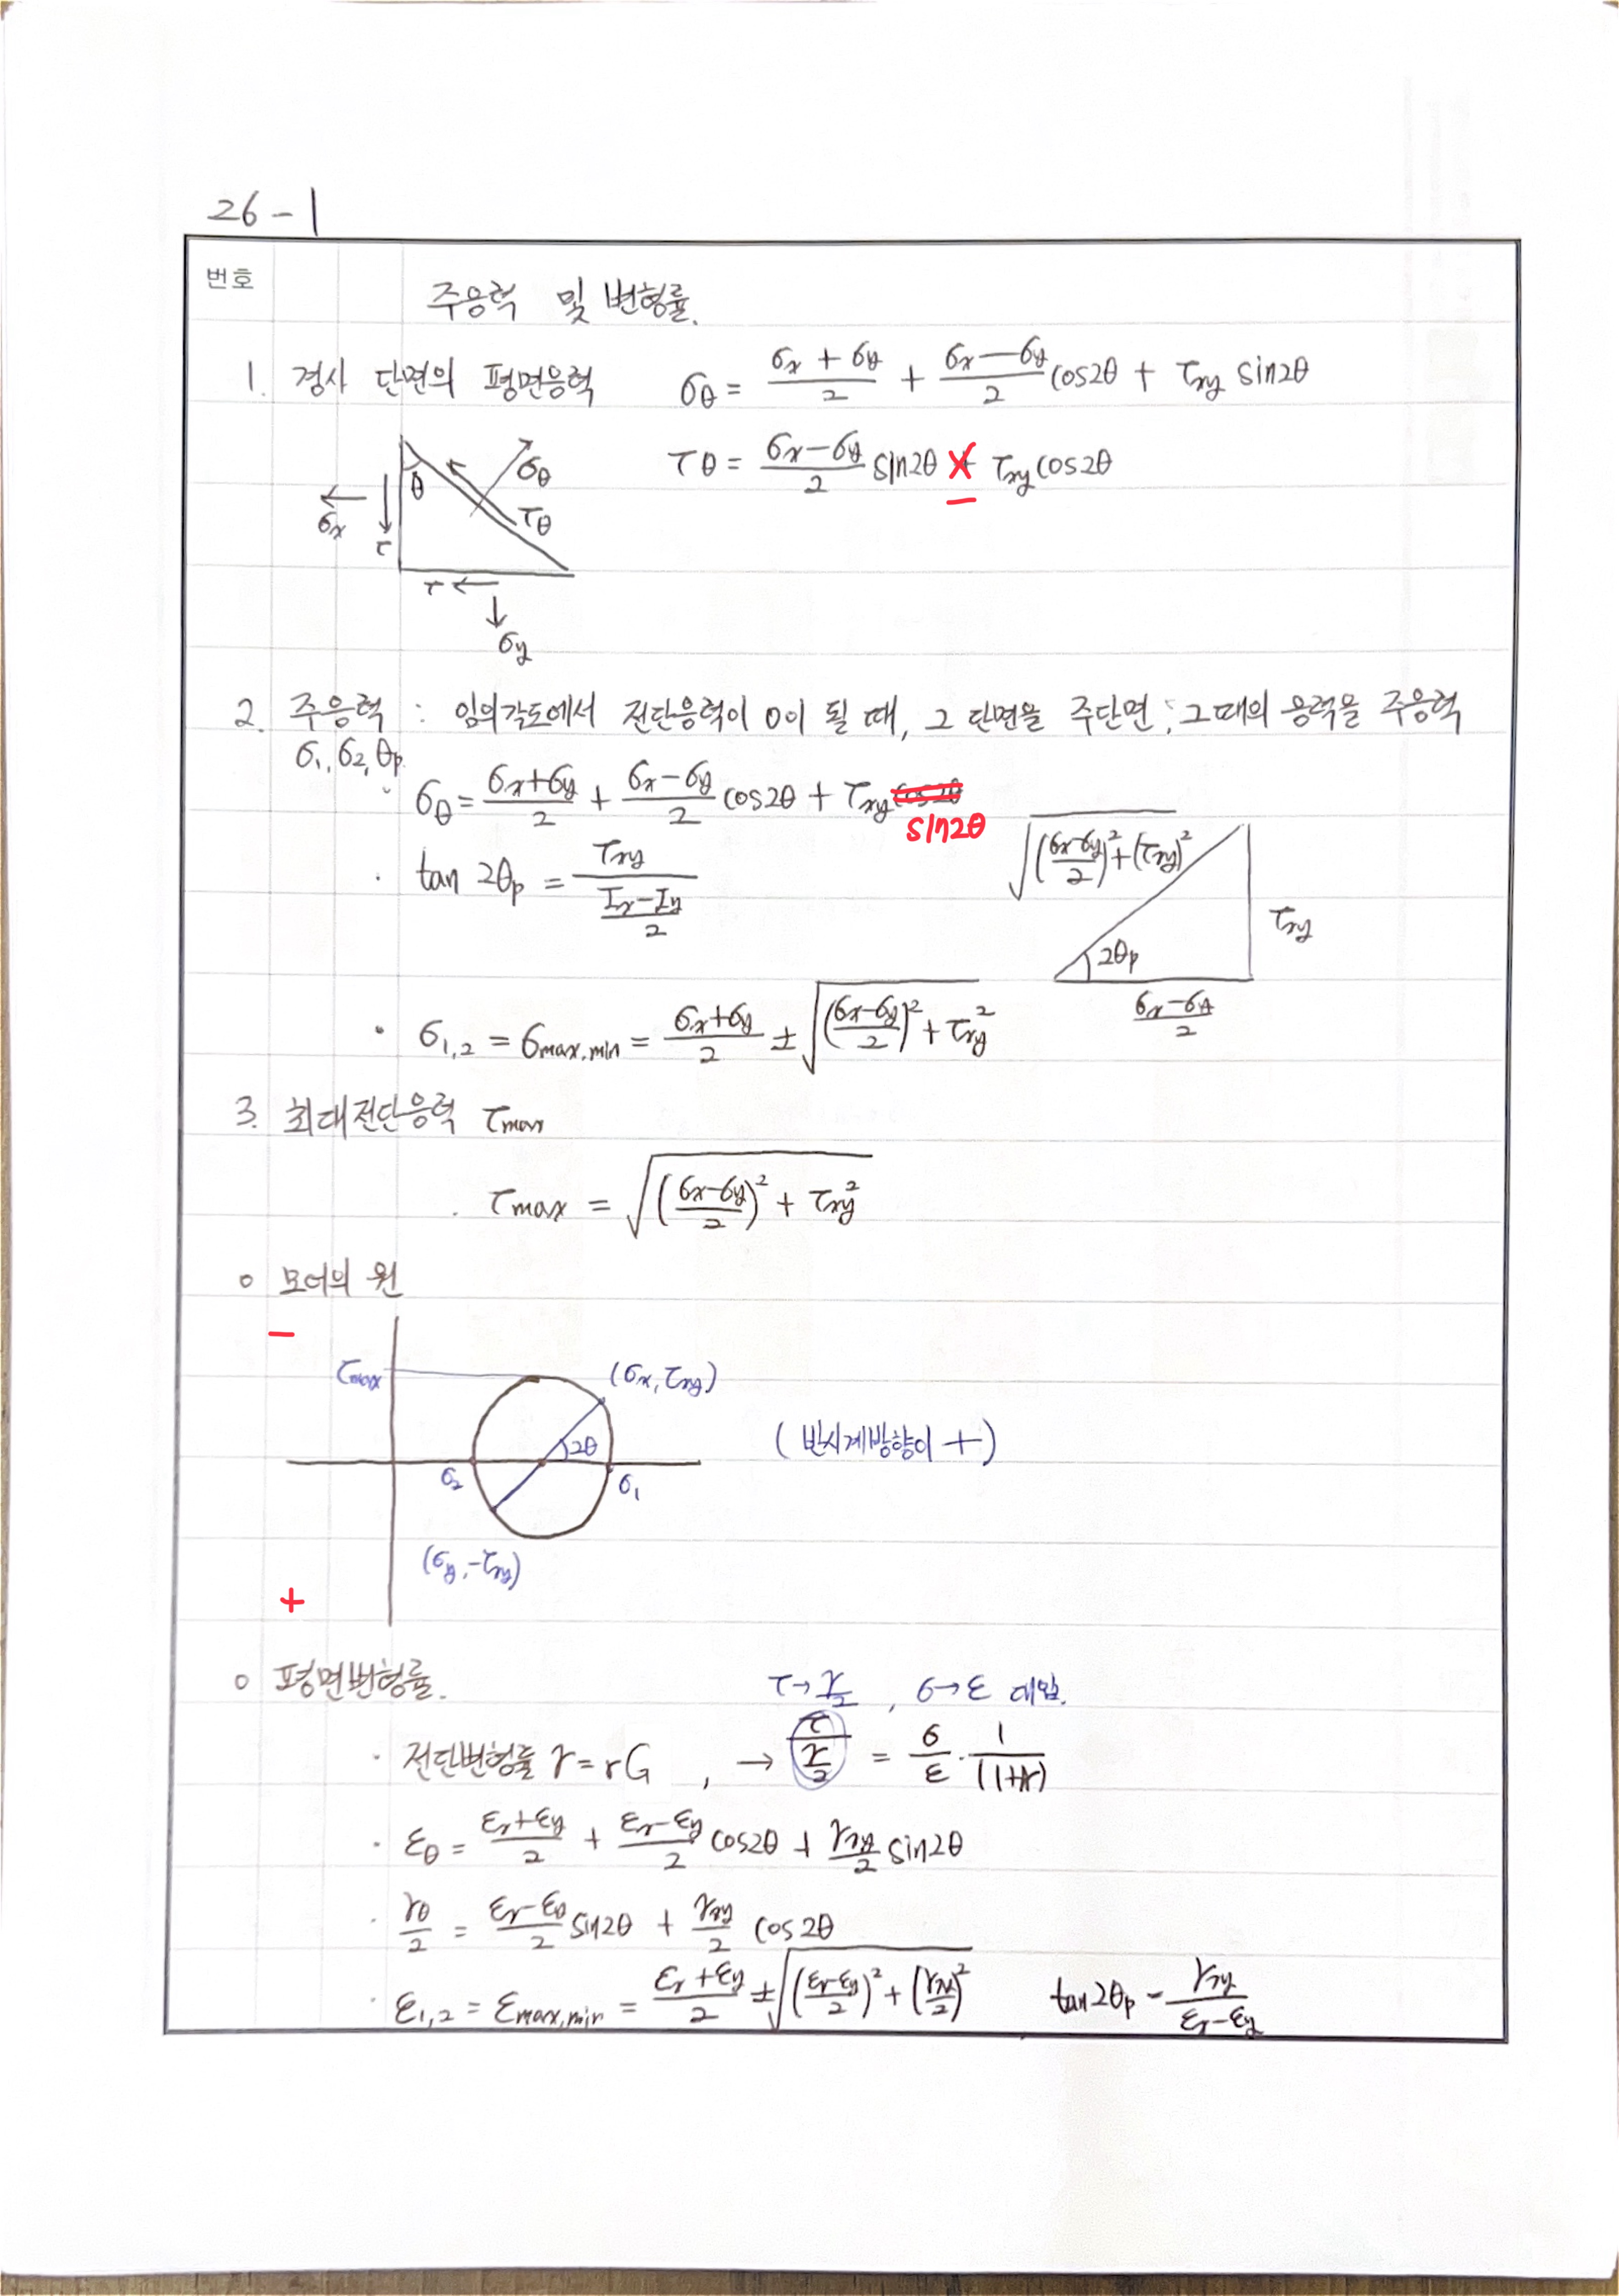 26-1
번호
주응력 및 변형률.
1. 경사 단면의 평면응력 σθ = (σx + σy)/2 + (σx - σy)/2 cos2θ + τxy sin2θ
τθ = (σx - σy)/2 sin2θ - τxy cos2θ
θ σθ
σx τ τθ
τ
σy
2. 주응력 : 임의각도에서 전단응력이 0이 될 때, 그 단면을 주단면, 그때의 응력을 주응력
σ1, σ2, θp
· σθ = (σx+σy)/2 + (σx-σy)/2 cos2θ + τxy cos2θ sin2θ
· tan 2θp = τxy/((Ix-Iy)/2)
√(((σx-σy)/2)² + (τxy)²) τxy
2θp
(σx-σy)/2
· σ1,2 = σmax,min = (σx+σy)/2 ± √(((σx-σy)/2)² + τxy²)
3. 최대전단응력 τmax
· τmax = √(((σx-σy)/2)² + τxy²)
o 모어의 원
-
τmax (σx, τxy)
2θ (반시계방향이 +)
σ2 σ1
(σy, -τxy)
+
o 평면변형률. τ→γ/2 , σ→ε 대입.
· 전단변형률 γ = rG , → τ/(γ/2) = σ/ε · 1/(1+ν)
· εθ = (εx+εy)/2 + (εx-εy)/2 cos2θ + γxy/2 sin2θ
· γθ/2 = (εx-εy)/2 sin2θ + γxy/2 cos2θ
· ε1,2 = εmax,min = (εx+εy)/2 ± √(((εx-εy)/2)² + (γxy/2)²) tan2θp - γxy/(εx-εy)